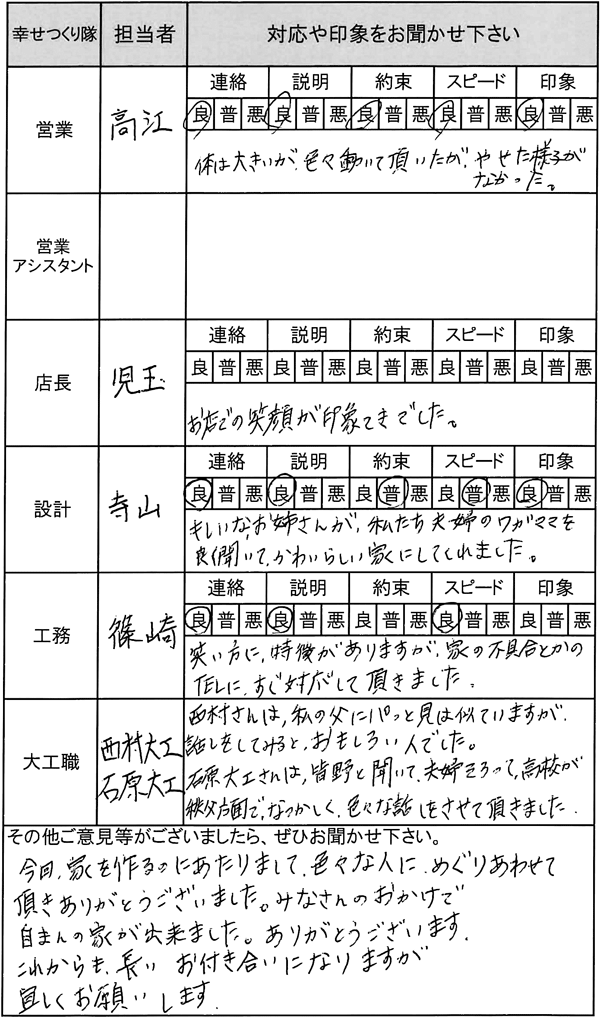 幸せつくり隊 担当者 対応や印象をお聞かせ下さい
営業 高江
連絡 説明 約束 スピード 印象
良 普 悪 良 普 悪 良 普 悪 良 普 悪 良 普 悪
体は大きいが、色々動いて頂いたが、やせた様子が
なかった。
営業
アシスタント
店長 児玉
連絡 説明 約束 スピード 印象
良 普 悪 良 普 悪 良 普 悪 良 普 悪 良 普 悪
お店での笑顔が印象てきでした。
設計 寺山
連絡 説明 約束 スピード 印象
良 普 悪 良 普 悪 良 普 悪 良 普 悪 良 普 悪
きれいなお姉さんが、私たち夫婦のワガママを
良く聞いて、かわいらしい家にしてくれました。
工務 篠崎
連絡 説明 約束 スピード 印象
良 普 悪 良 普 悪 良 普 悪 良 普 悪 良 普 悪
笑い方に、特徴がありますが、家の不具合とかの
TELに、すぐ対応して頂きました。
大工職 西村大工
石原大工
西村さんは、私の父にパッと見は似ていますが、
話しをしてみると、おもしろい人でした。
石原大工さんは、皆野と聞いて、夫婦そろって、高校が
秩父方面で、なつかしく、色々な話しをさせて頂きました。
その他ご意見等がございましたら、ぜひお聞かせ下さい。
今回、家を作るのにあたりまして、色々な人に、めぐりあわせて
頂きありがとうございました。みなさんのおかけで
自まんの家が出来ました。ありがとうございます。
これからも、長い お付き合いになりますが
宜しくお願いします.